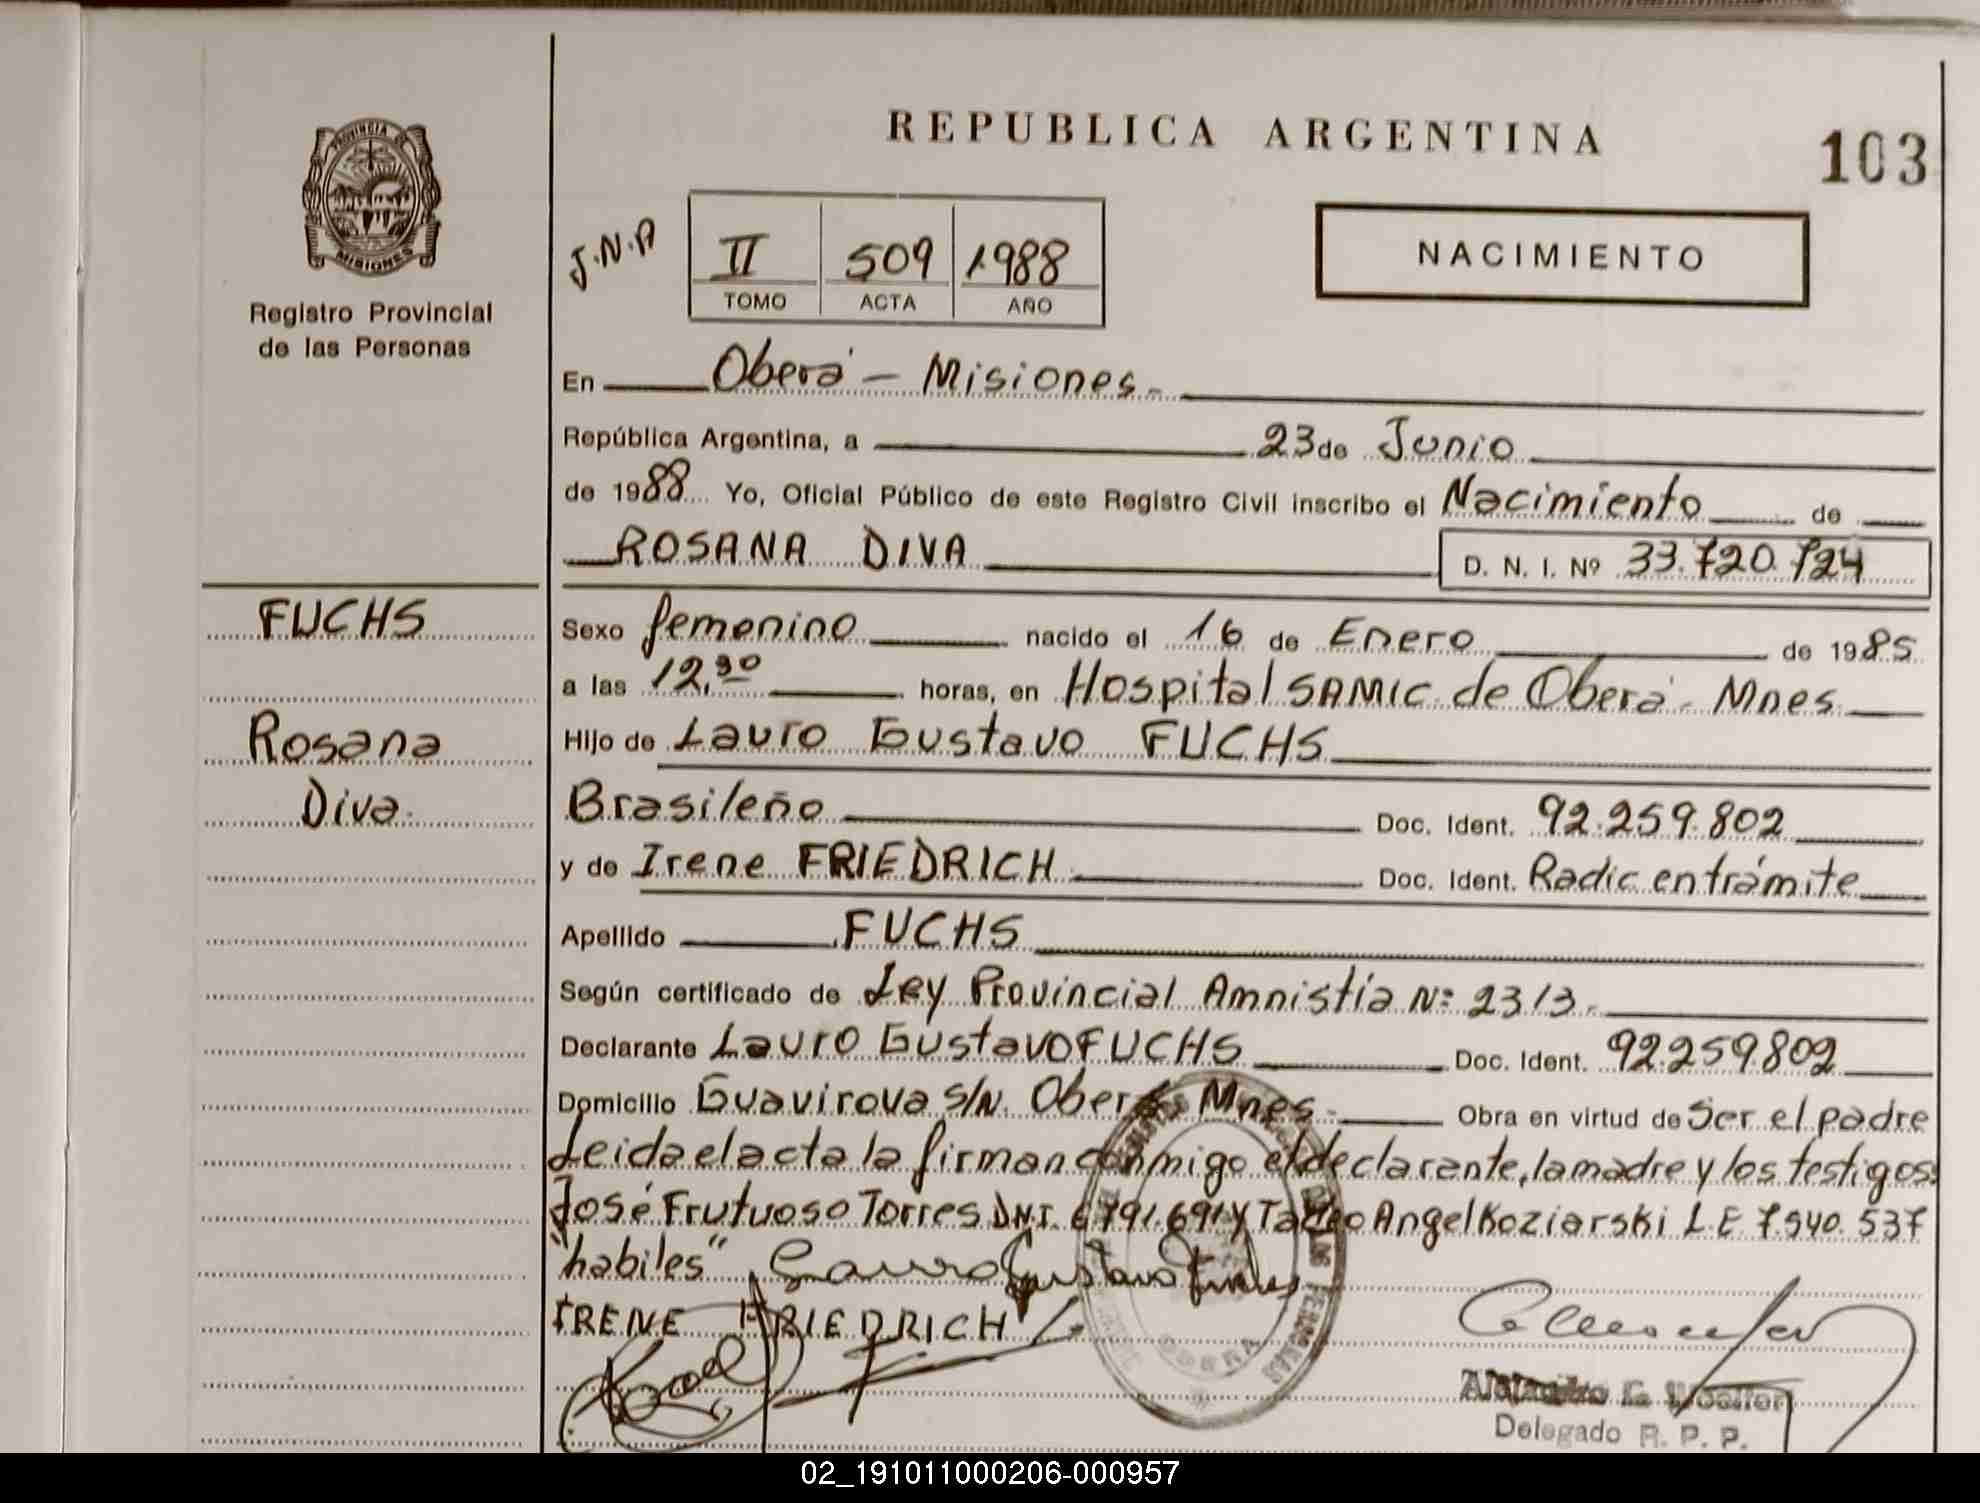 REPUBLICA ARGENTINA
103
PROVINCIA DE
MISIONES
Registro Provincial
de las Personas
J.N.A
II 509 1988
TOMO ACTA AÑO
NACIMIENTO
En Oberá - Misiones.
República Argentina, a 23 de Junio
de 1988 Yo, Oficial Público de este Registro Civil inscribo el Nacimiento de
ROSANA DIVA D. N. I. Nº 33.720.724
FUCHS
Rosana
Diva.
Sexo femenino nacido el 16 de Enero de 1985
a las 12,30 horas, en Hospital SAMIC de Oberá - Mnes
Hijo de Lauro Gustavo FUCHS
Brasileño Doc. Ident. 92.259.802
y de Irene FRIEDRICH Doc. Ident. Radic en trámite
Apellido FUCHS
Según certificado de Ley Provincial Amnistía Nº 2313.
Declarante Lauro Gustavo FUCHS Doc. Ident. 92.259.802
Domicilio Guavirova S/N. Oberá Mnes. Obra en virtud de Ser el padre
Leida el acta la firman conmigo el declarante, la madre y los testigos
José Frutuoso Torres DNI. 6791.691 Y Tadeo Angel Koziarski L.E 7.540.537
"habiles" Lauro Gustavo Fuchs
IRENE FRIEDRICH
OBERA
Delegado R. P. P.
02_191011000206-000957